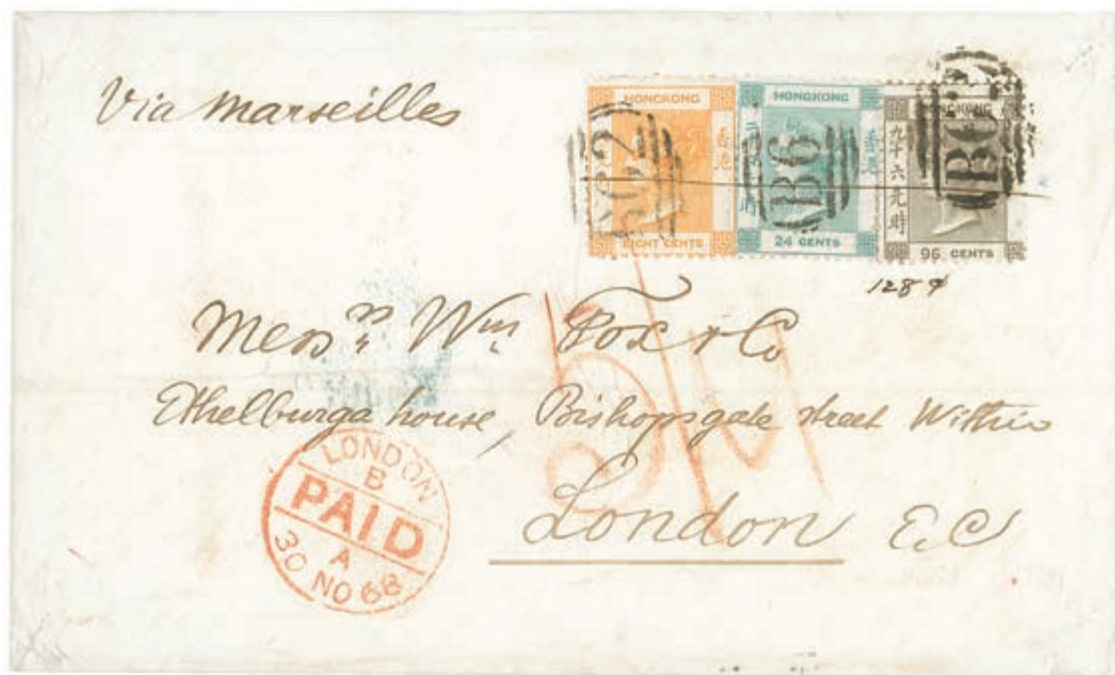 Via Marseilles
HONGKONG
香港
EIGHT CENTS
B62
HONGKONG
香港
24 CENTS
B62
HONGKONG
九十六元時
96 CENTS
B62
128¢
Messrs Wm Fox & Co
Ethelburga house, Bishopsgate street Within
London E.C
LONDON
B
PAID
A
30 NO 68